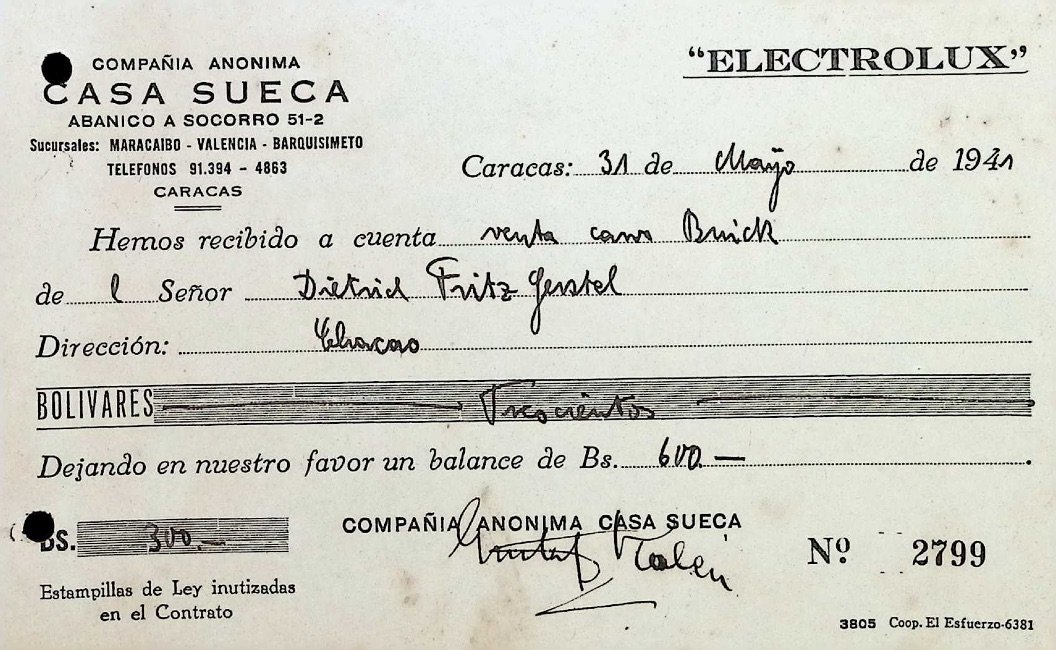 COMPAÑIA ANONIMA
CASA SUECA
ABANICO A SOCORRO 51-2
Sucursales: MARACAIBO - VALENCIA - BARQUISIMETO
TELEFONOS 91.394 - 4863
CARACAS
"ELECTROLUX"
Caracas: 31 de Mayo de 1941
Hemos recibido a cuenta venta carro Buick
de l Señor Dietrich Fritz Gerstel
Dirección: Chacao
BOLIVARES Trescientos
Dejando en nuestro favor un balance de Bs. 600.—
BS. 300.—
COMPAÑIA ANONIMA CASA SUECA
Nº 2799
Estampillas de Ley inutizadas
en el Contrato
3805 Coop. El Esfuerzo-6381